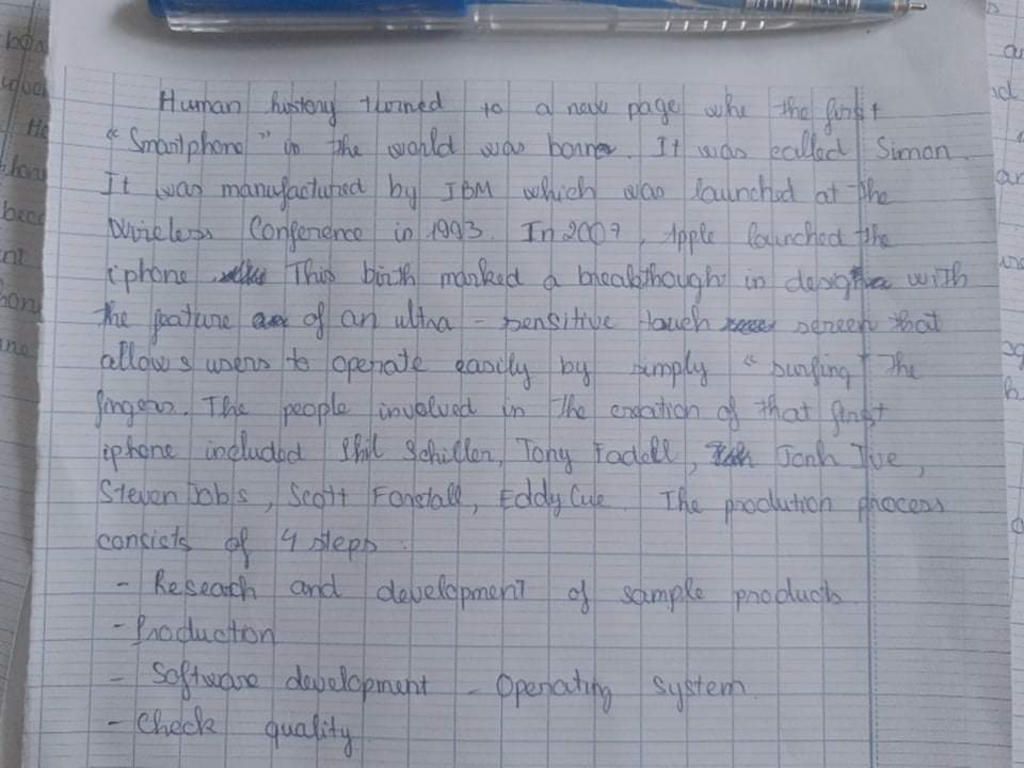 Human history turned to a new page whe the first
"Smartphone" in the world was borne. It was called Simon.
It was manufactured by IBM which was launched at the
Wireless Conference in 1993. In 2007, Apple launched the
iphone This birth marked a breakthough in design with
the feature of an ultra - sensitive touch screen that
allows users to operate easily by simply "surfing the
fingers. The people involved in the creation of that first
iphone included Phil Schiller, Tony Fadell, Jonh Ive,
Steven Jobs, Scott Forstall, Eddy Cue. The prodution process
consicts of 4 steps.
- Reseach and development of sample products
- Production
- Software development - Operating system.
- Check quality